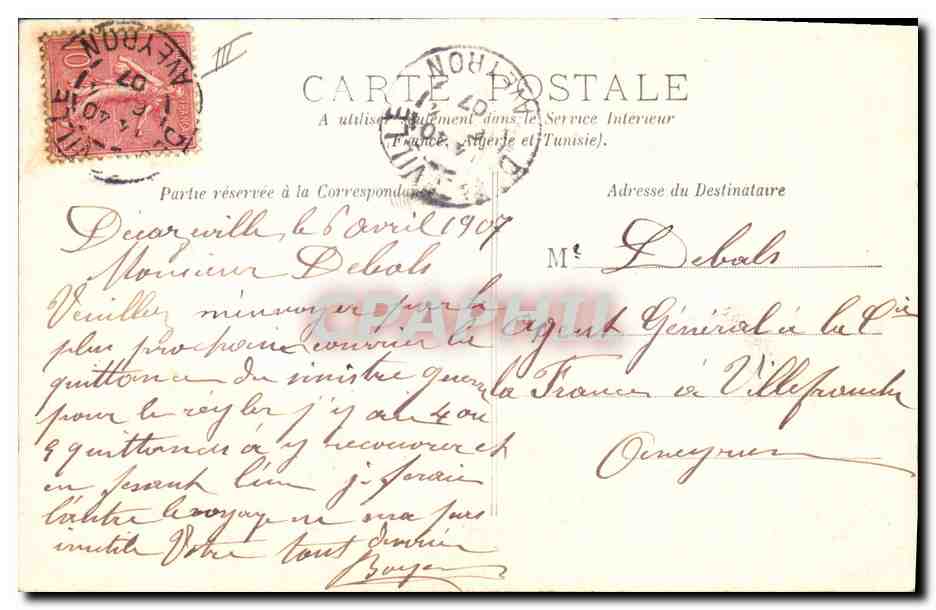 10
DECAZEVILLE
AVEYRON
14 40
6
07
III
CARTE POSTALE
A utiliser seulement dans le Service Intérieur
(France, Algérie et Tunisie).
DECAZEVILLE
AVEYRON
14 40
07
Partie réservée à la Correspondance
Decazeville le 6 avril 1907
Monsieur Debals
Veuillez m'envoyer par le
plus prochain courrier la
quittance du sinistre
pour le régler j'y ai 4 ou
5 quittances à y recouvrer et
en fesant l'un je ferai
l'autre le voyage ne sera pas
inutile Votre tout dévoué
Boyer
Adresse du Destinataire
Mr Debals
agent Général à la Cie
la France à Villefranche
Aveyron
CPAPHIL